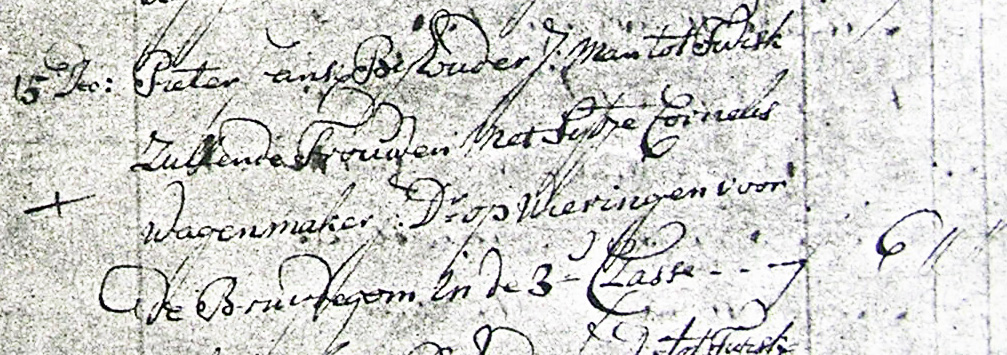 15 Dec: Pieter Jansz Bijlouder J. Man tot Twisk
Zullende Trouwen Met Sytze Cornelis
+ Wagenmaker Dr op Wieringen voor
de Bruydegom in de 3e Classe - - - 6 "
tot Twisk